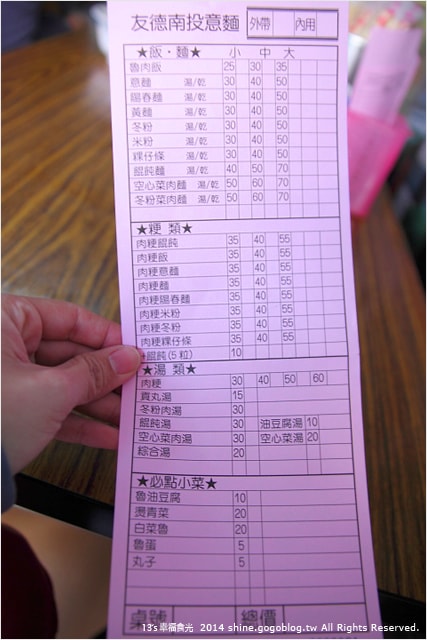 友德南投意麵 外帶 內用
★飯‧麵★ 小 中 大
魯肉飯 25 30 35
意麵 湯/乾 30 40 50
陽春麵 湯/乾 30 40 50
黃麵 湯/乾 30 40 50
冬粉 湯/乾 30 40 50
米粉 湯/乾 30 40 50
粿仔條 湯/乾 30 40 50
餛飩麵 湯/乾 40 50 70
空心菜肉麵 湯/乾 50 60 70
冬粉菜肉麵 湯/乾 50 60 70
★粳 類★
肉粳餛飩 35 40 55
肉粳飯 35 40 55
肉粳意麵 35 40 55
肉粳麵 35 40 55
肉粳陽春麵 35 40 55
肉粳米粉 35 40 55
肉粳冬粉 35 40 55
肉粳粿仔條 35 40 55
+餛飩(5粒) 10
★湯 類★
肉粳 30 40 50 60
貢丸湯 15
冬粉肉湯 30
餛飩湯 30 油豆腐湯 10
空心菜肉湯 30 空心菜湯 20
綜合湯 20
★必點小菜★
魯油豆腐 10
燙青菜 20
白菜魯 20
魯蛋 5
丸子 5
桌號 總價
13's幸福食光 2014 shine.gogoblog.tw All Rights Reserved.